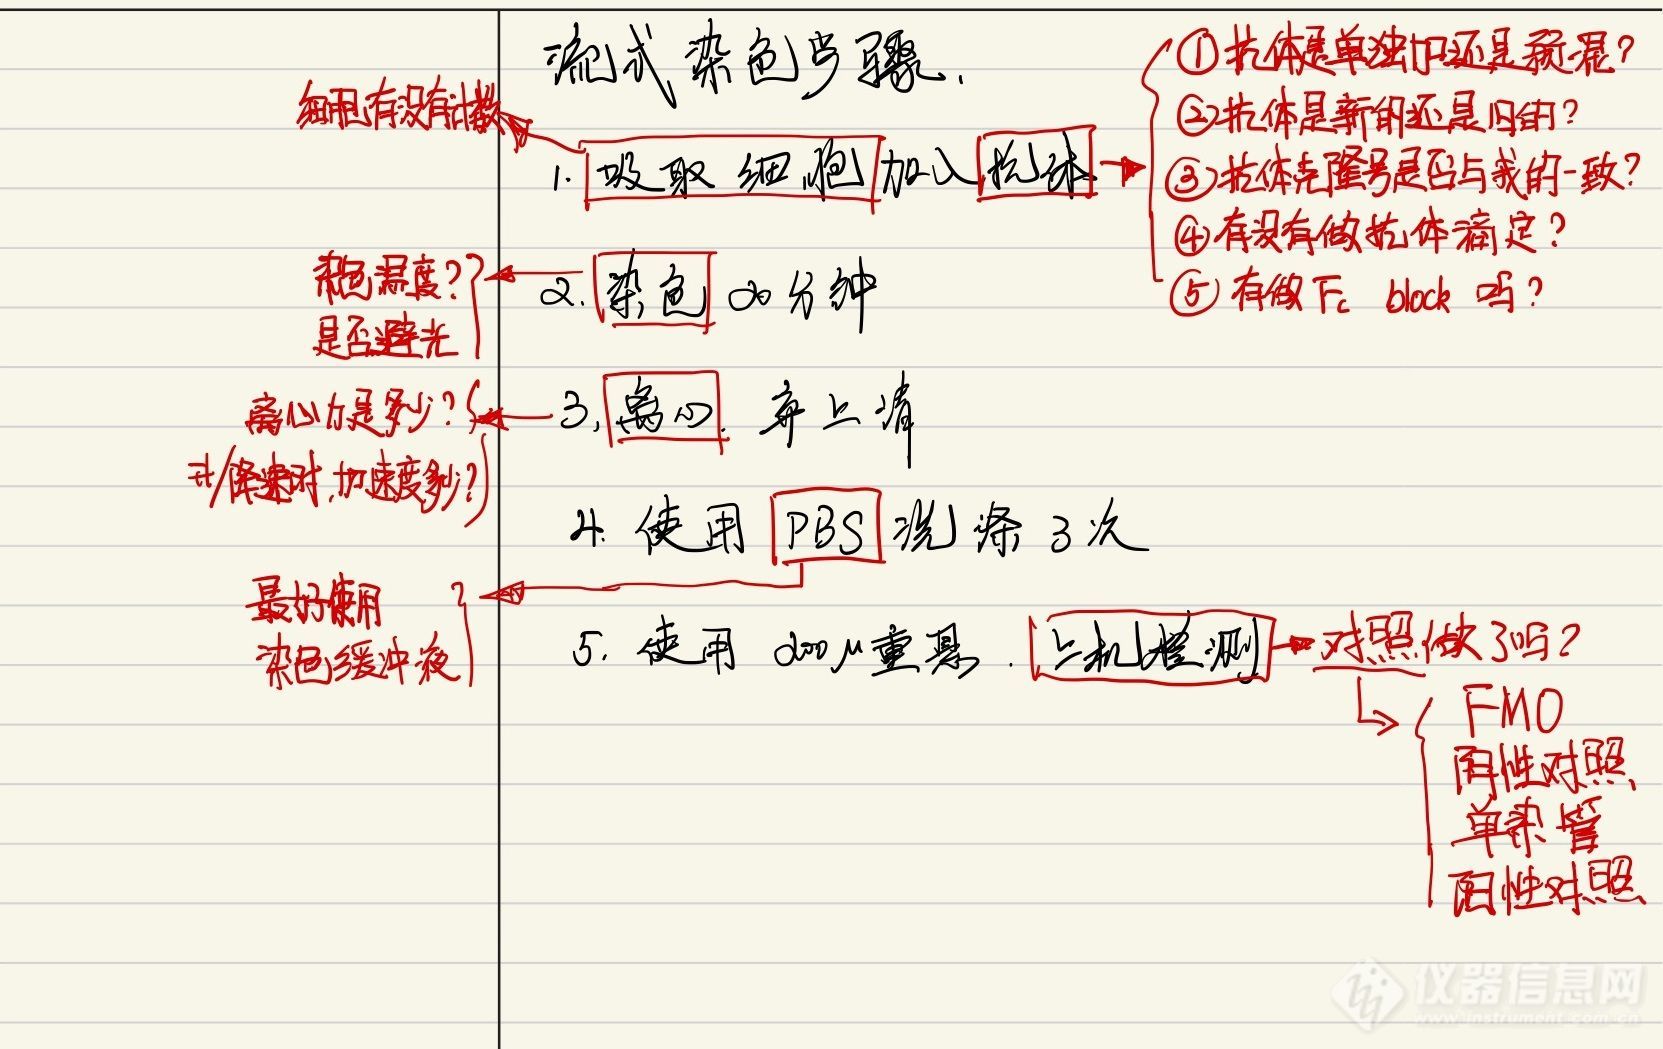 流式染色步骤.
细胞有没有计数
1. 吸取细胞加入抗体
①抗体是单独加还是预混?
②抗体是新的还是旧的?
③抗体克隆号是否与我的一致?
④有没有做抗体滴定?
⑤有做Fc block 吗?
染色温度?
是否避光
2. 染色 20分钟
离心力是多少?
升/降速时,加速度多少?
3. 离心. 弃上清
4. 使用 PBS 洗涤 3次
最好使用
染色缓冲液
5. 使用 200μ重悬. 上机检测
对照做了吗?
FMO
阴性对照
单染管
阳性对照
仪器信息网
www.instrument.com.cn